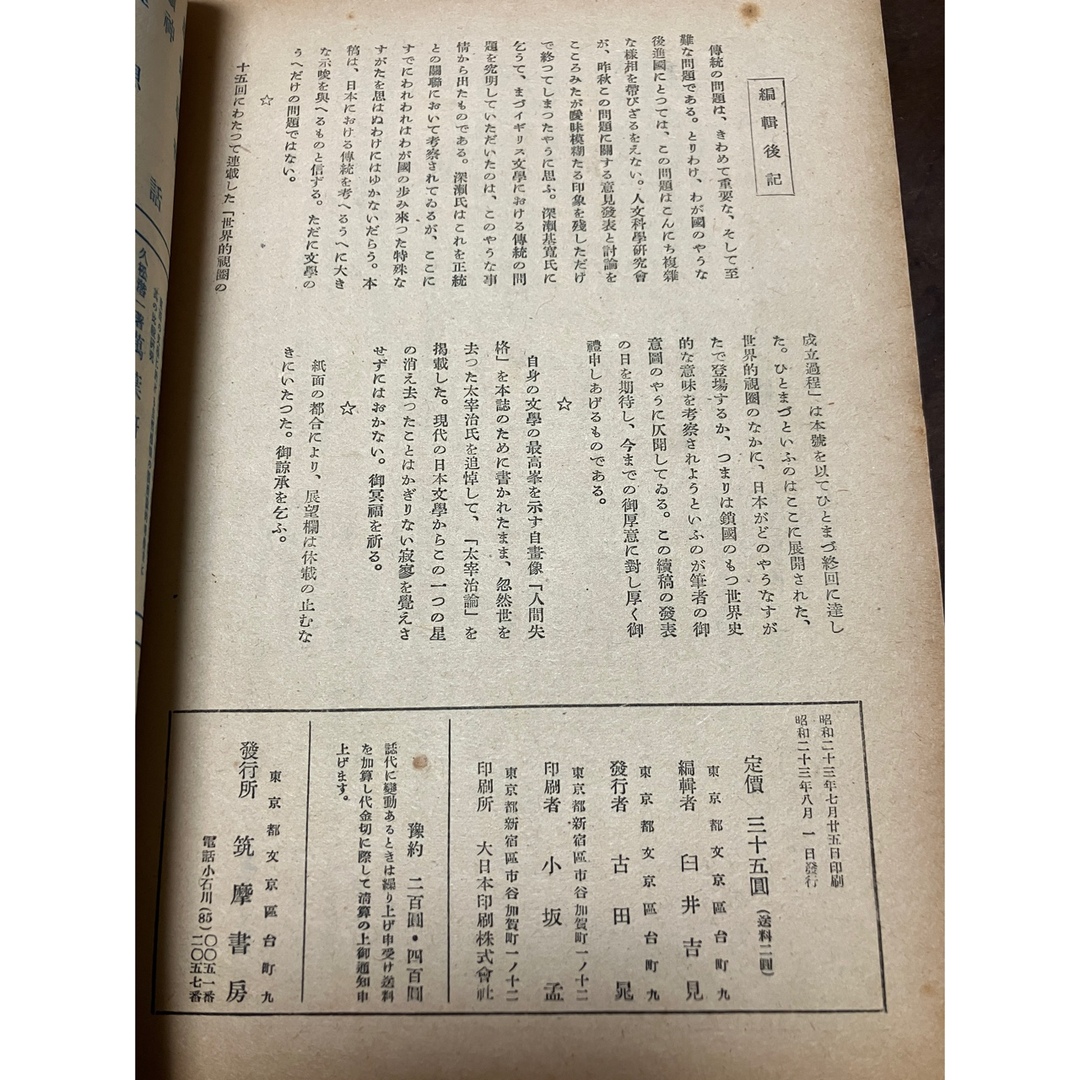 編輯後記
傳統の問題は、きわめて重要な、そして至
難な問題である。とりわけ、わが國のやうな
後進國にとつては、この問題はこんにち複雜
な樣相を帶びざるをえない。人文科學硏究會
が、昨秋この問題に關する意見發表と討論を
こころみたが曖昧模糊たる印象を殘しただけ
で終つてしまつたやうに思ふ。深瀨基寬氏に
乞うて、まづイギリス文學における傳統の問
題を究明していただいたのは、このやうな事
情から出たものである。深瀨氏はこれを正統
との關聯において考察されてゐるが、ここに
すでにわれわれはわが國の步み來つた特殊な
すがたを思はぬわけにはゆかないだらう。本
稿は、日本における傳統を考へるうへに大き
な示唆を與へるものと信ずる。ただに文學の
うへだけの問題ではない。
☆
十五回にわたつて連載した「世界的視圈の
成立過程」は本號を以てひとまづ終回に達し
た。ひとまづといふのはここに展開された、
世界的視圈のなかに、日本がどのやうなすが
たで登場するか、つまりは鎖國のもつ世界史
的な意味を考察されようといふのが筆者の御
意圖のやうに仄聞してゐる。この續稿の發表
の日を期待し、今までの御厚意に對し厚く御
禮申しあげるものである。
☆
自身の文學の最高峯を示す自畫像「人間失
格」を本誌のために書かれたまま、忽然世を
去った太宰治氏を追悼して、「太宰治論」を
揭載した。現代の日本文學からこの一つの星
の消え去つたことはかぎりない寂寥を覺えさ
せずにはおかない。御冥福を祈る。
☆
紙面の都合により、展望欄は休載の止むな
きにいたつた。御諒承を乞ふ。
昭和二十三年七月廿五日印刷
昭和二十三年八月 一日發行
定價 三十五圓(送料二圓)
東京都文京區台町九
編輯者 臼井吉見
東京都文京區台町九
發行者 古田晁
東京都新宿區市谷加賀町一ノ十二
印刷者 小坂孟
東京都新宿區市谷加賀町一ノ十二
印刷所 大日本印刷株式會社
豫約 二百圓・四百圓
誌代に變動あるときは繰り上げ申受け送料
を加算し代金切に際して淸算の上御通知申
上げます。
東京都文京區台町九
發行所 筑摩書房
電話小石川(85)〇〇五一番
二〇五七番
話